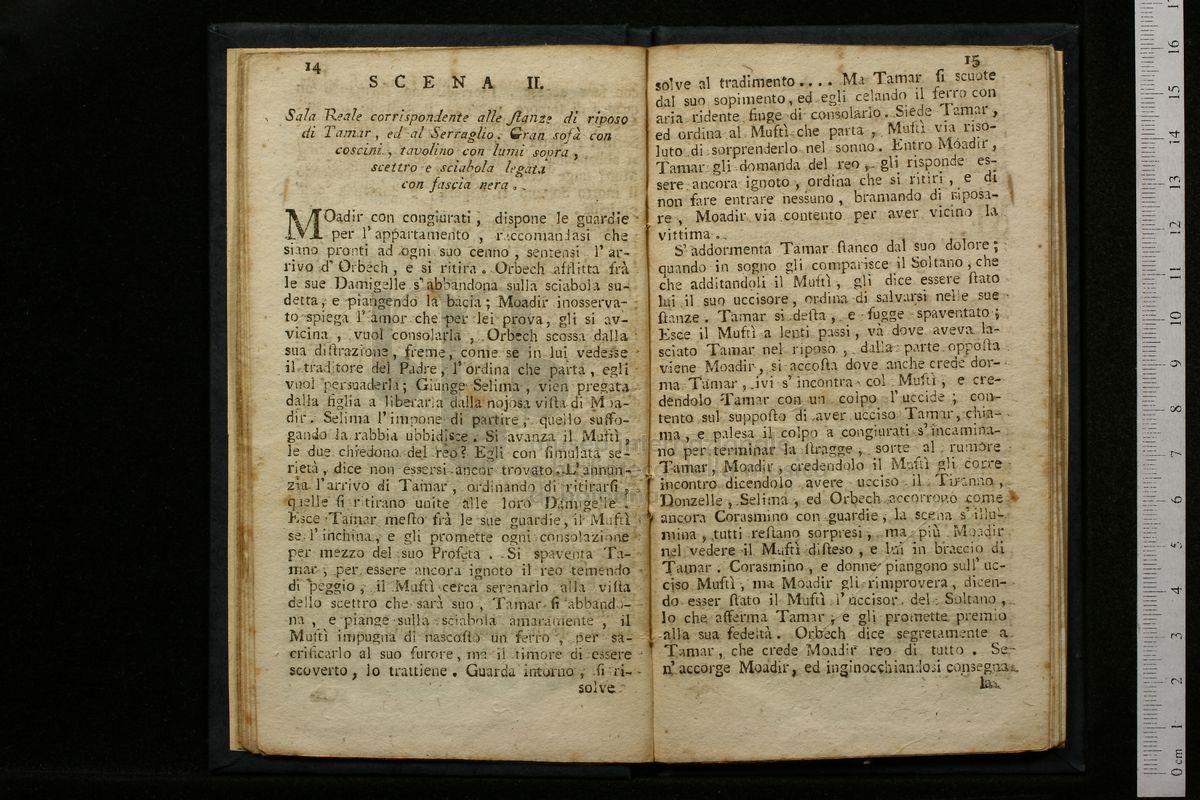 14
SCENA II.
Sala Reale corrispondente alle ſtanze di riposo
di Tamar, ed al Serraglio. Gran sofà con
coscini, tavolino con lumi sopra,
scettro e sciabola legata
con fascia nera.
MOadir con congiurati, dispone le guardie
per l'appartamento, raccomandasi che
siano pronti ad ogni suo cenno, sentensi l'ar-
rivo d'Orbech, e si ritira. Orbech afflitta frà
le sue Damigelle s'abbandona sulla sciabola su-
detta, e piangendo la bacia; Moadir inosserva-
to spiega l'amor che per lei prova, gli si av-
vicina, vuol consolarla, Orbech scossa dalla
sua diſtrazione, freme, come se in lui vedesse
il traditore del Padre, l'ordina che parta, egli
vuol persuaderla; Giunge Selima, vien pregata
dalla figlia a liberarla dalla nojosa viſta di Moa-
dir. Selima l'impone di partire, quello suffo-
gando la rabbia ubbidisce. Si avanza il Muftì,
le due chiedono del reo? Egli con ſimulata se-
rietà, dice non essersi ancor trovato. L'annun-
zia l'arrivo di Tamar, ordinando di ritirarſi,
quelle ſi ritirano unite alle loro Damigelle.
Esce Tamar meſto frà le sue guardie, il Muftì
se l'inchina, e gli promette ogni consolazione
per mezzo del suo Profeta. Si spaventa Ta-
mar, per essere ancora ignoto il reo temendo
di peggio, il Muftì cerca serenarlo alla viſta
dello scettro che sarà suo, Tamar ſi abbando-
na, e piange sulla sciabola amaramente, il
Muftì impugna di nascoſto un ferro, per sa-
crificarlo al suo furore, ma il timore di essere
scoverto, lo trattiene. Guarda intorno, ſi ri-
solve
15
solve al tradimento.... Ma Tamar ſi scuote
dal suo sopimento, ed egli celando il ferro con
aria ridente finge di consolarlo. Siede Tamar,
ed ordina al Muftì che parta, Muftì via riso-
luto di sorprenderlo nel sonno. Entro Moadir,
Tamar gli domanda del reo, gli risponde es-
sere ancora ignoto, ordina che si ritiri, e di
non fare entrare nessuno, bramando di riposa-
re, Moadir via contento per aver vicino la
vittima.
S'addormenta Tamar ſtanco dal suo dolore;
quando in sogno gli comparisce il Soltano, che
che additandoli il Muftì, gli dice essere ſtato
lui il suo uccisore, ordina di salvarsi nelle sue
ſtanze. Tamar si deſta, e fugge spaventato;
Esce il Muftì a lenti passi, và dove aveva la-
sciato Tamar nel riposo, dalla parte oppoſta
viene Moadir, si accoſta dove anche crede dor-
ma Tamar, ivi s'incontra col Muftì, e cre-
dendolo Tamar con un colpo l'uccide; con-
tento sul suppoſto di aver ucciso Tamar, chia-
ma, e palesa il colpo a congiurati s'incamina-
no per terminar la ſtragge, sorte al rumore
Tamar, Moadir, credendolo il Muftì gli corre
incontro dicendolo avere ucciso il Tiranno,
Donzelle, Selima, ed Orbech accorrono come
ancora Corasmino con guardie, la scena s'illu-
mina, tutti reſtano sorpresi, ma più Moadir
nel vedere il Muftì diſteso, e lui in braccio di
Tamar. Corasmino, e donne piangono sull'uc-
ciso Muftì, ma Moadir gli rimprovera, dicen-
do esser ſtato il Muftì l'uccisor del Soltano,
lo che afferma Tamar, e gli promette premio
alla sua fedeltà. Orbech dice segretamente a
Tamar, che crede Moadir reo di tutto. Se
n'accorge Moadir, ed inginocchiandosi consegna
la